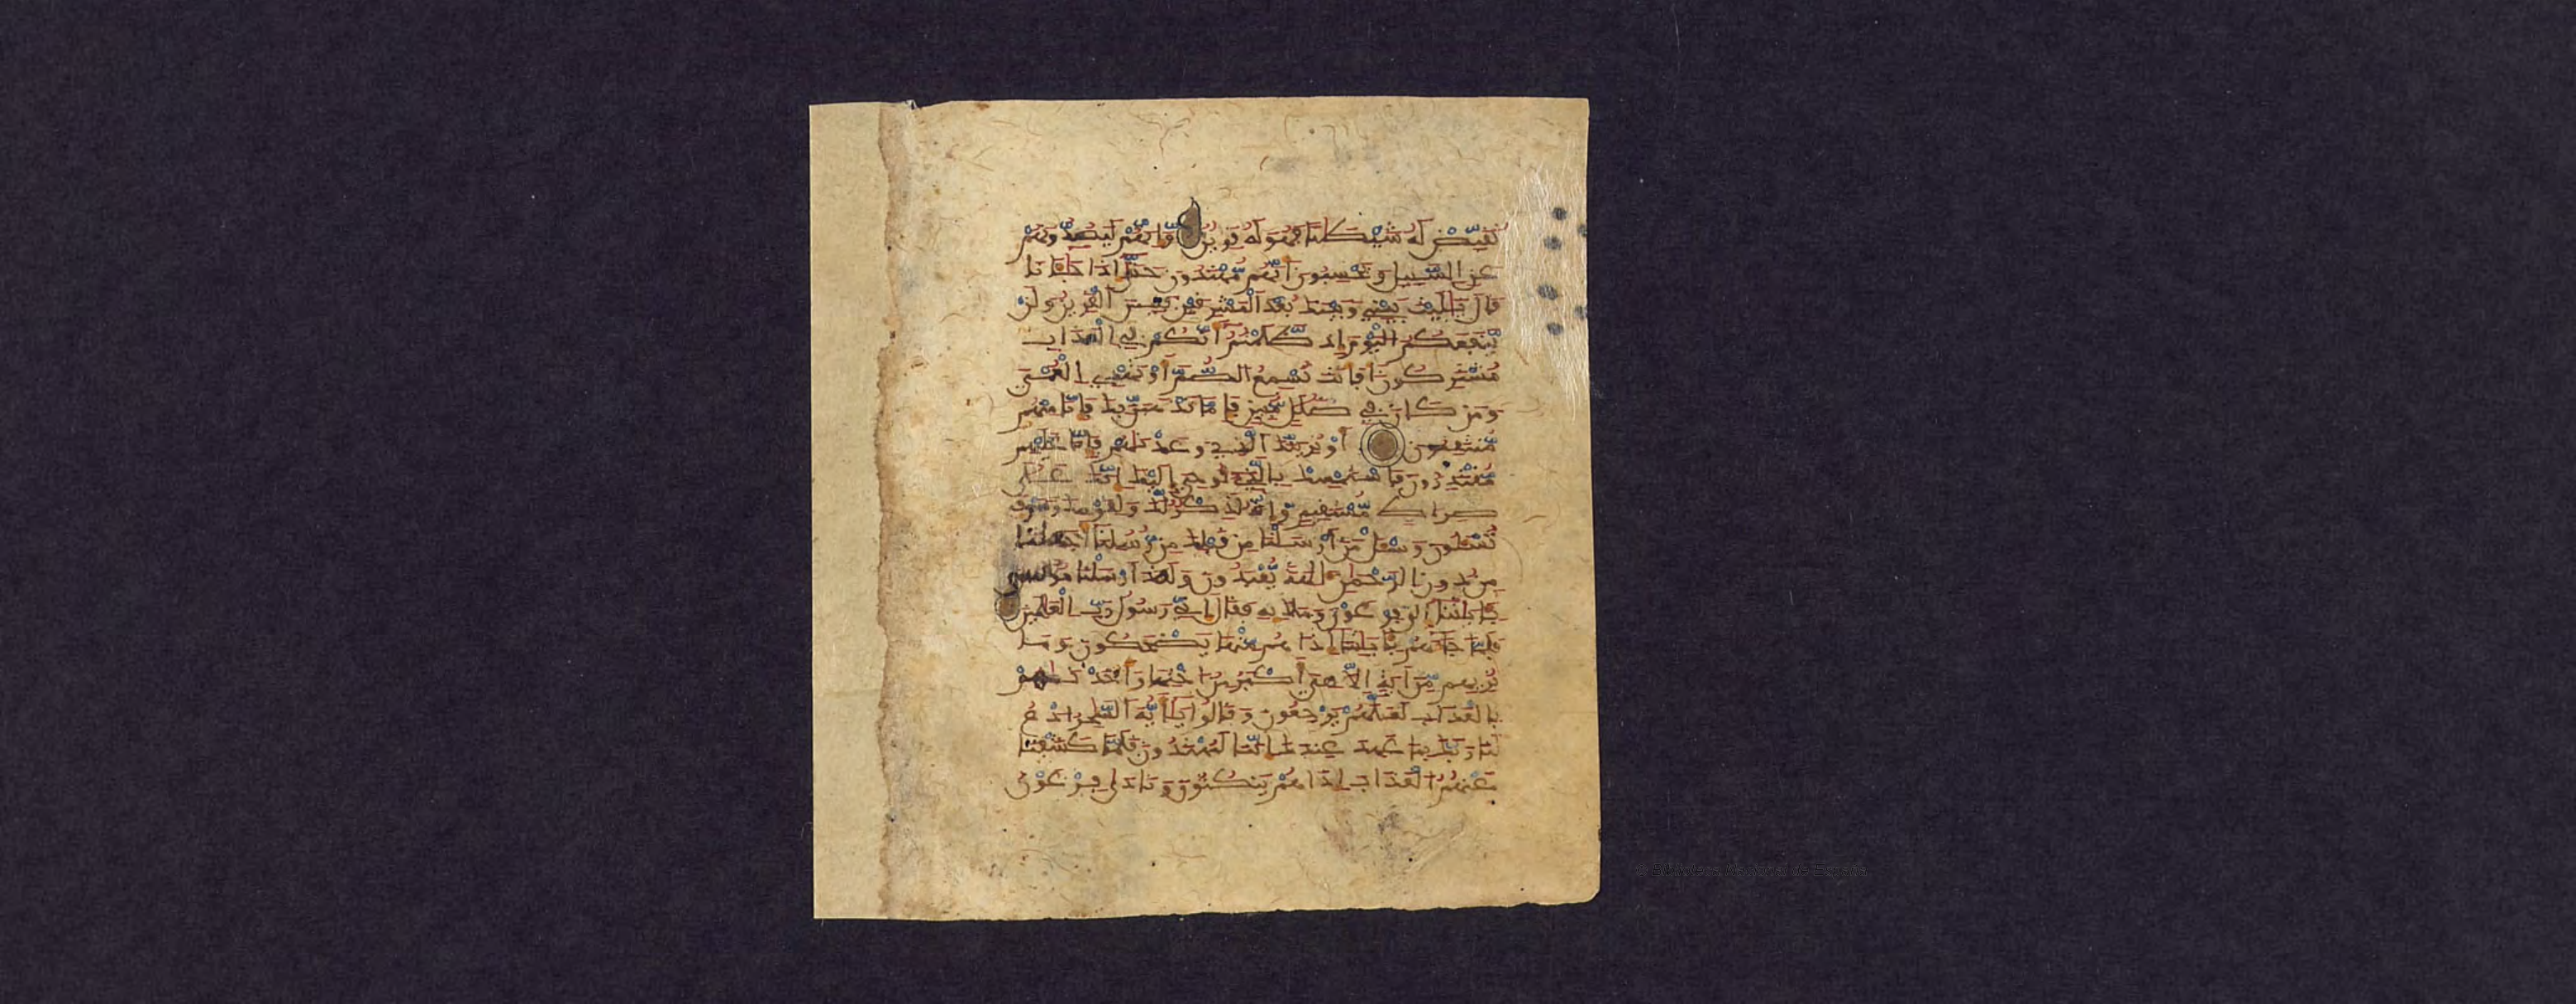 نُقَيِّضْ لَهُ شَيْطَٰنًا فَهُوَ لَهُ قَرِينٌ وَإِنَّهُمْ لَيَصُدُّونَهُمْ
عَنِ السَّبِيلِ وَيَحْسِبُونَ أَنَّهُم مُّهْتَدُونَ حَتَّىٰ إِذَا جَآءَٰنَا
قَالَ يَٰلَيْتَ بَيْنِي وَبَيْنَكَ بُعْدَ الْمَشْرِقَيْنِ فَبِيسَ الْقَرِينُ وَلَنْ
يَّنفَعَكُمُ الْيَوْمَ إِذ ظَّلَمْتُمْ أَنَّكُمْ فِي الْعَذَابِ
مُشْتَرِكُونَ أَفَأَنتَ تُسْمِعُ الصُّمَّ أَوْ تَهْدِي الْعُمْيَ
وَمَن كَانَ فِي ضَلَٰلٍ مُّبِينٍ فَإِمَّا نَذْهَبَنَّ بِكَ فَإِنَّا مِنْهُم
مُّنتَقِمُونَ أَوْ نُرِيَنَّكَ الَّذِي وَعَدْنَٰهُمْ فَإِنَّا عَلَيْهِم
مُّقْتَدِرُونَ فَاسْتَمْسِكْ بِالَّذِي أُوحِيَ إِلَيْكَ إِنَّكَ عَلَىٰ
صِرَاطٍ مُّسْتَقِيمٍ وَإِنَّهُ لَذِكْرٌ لَّكَ وَلِقَوْمِكَ وَسَوْفَ
تُسْـَٔلُونَ وَسْـَٔلْ مَنْ أَرْسَلْنَا مِن قَبْلِكَ مِن رُّسُلِنَا أَجَعَلْنَا
مِن دُونِ الرَّحْمَٰنِ ءَالِهَةً يُعْبَدُونَ وَلَقَدْ أَرْسَلْنَا مُوسَىٰ
بِـَٔايَٰتِنَا إِلَىٰ فِرْعَوْنَ وَمَلَإِيهِ فَقَالَ إِنِّي رَسُولُ رَبِّ الْعَٰلَمِينَ
فَلَمَّا جَآءَهُم بِـَٔايَٰتِنَا إِذَا هُم مِّنْهَا يَضْحَكُونَ وَمَا
نُرِيهِم مِّنْ ءَايَةٍ إِلَّا هِيَ أَكْبَرُ مِنْ أُخْتِهَا وَأَخَذْنَٰهُم
بِالْعَذَابِ لَعَلَّهُمْ يَرْجِعُونَ وَقَالُوا يَٰأَيُّهَ السَّاحِرُ ادْعُ
لَنَا رَبَّكَ بِمَا عَهِدَ عِندَكَ إِنَّنَا لَمُهْتَدُونَ فَلَمَّا كَشَفْنَا
عَنْهُمُ الْعَذَابَ إِذَا هُمْ يَنكُثُونَ وَنَادَىٰ فِرْعَوْنُ